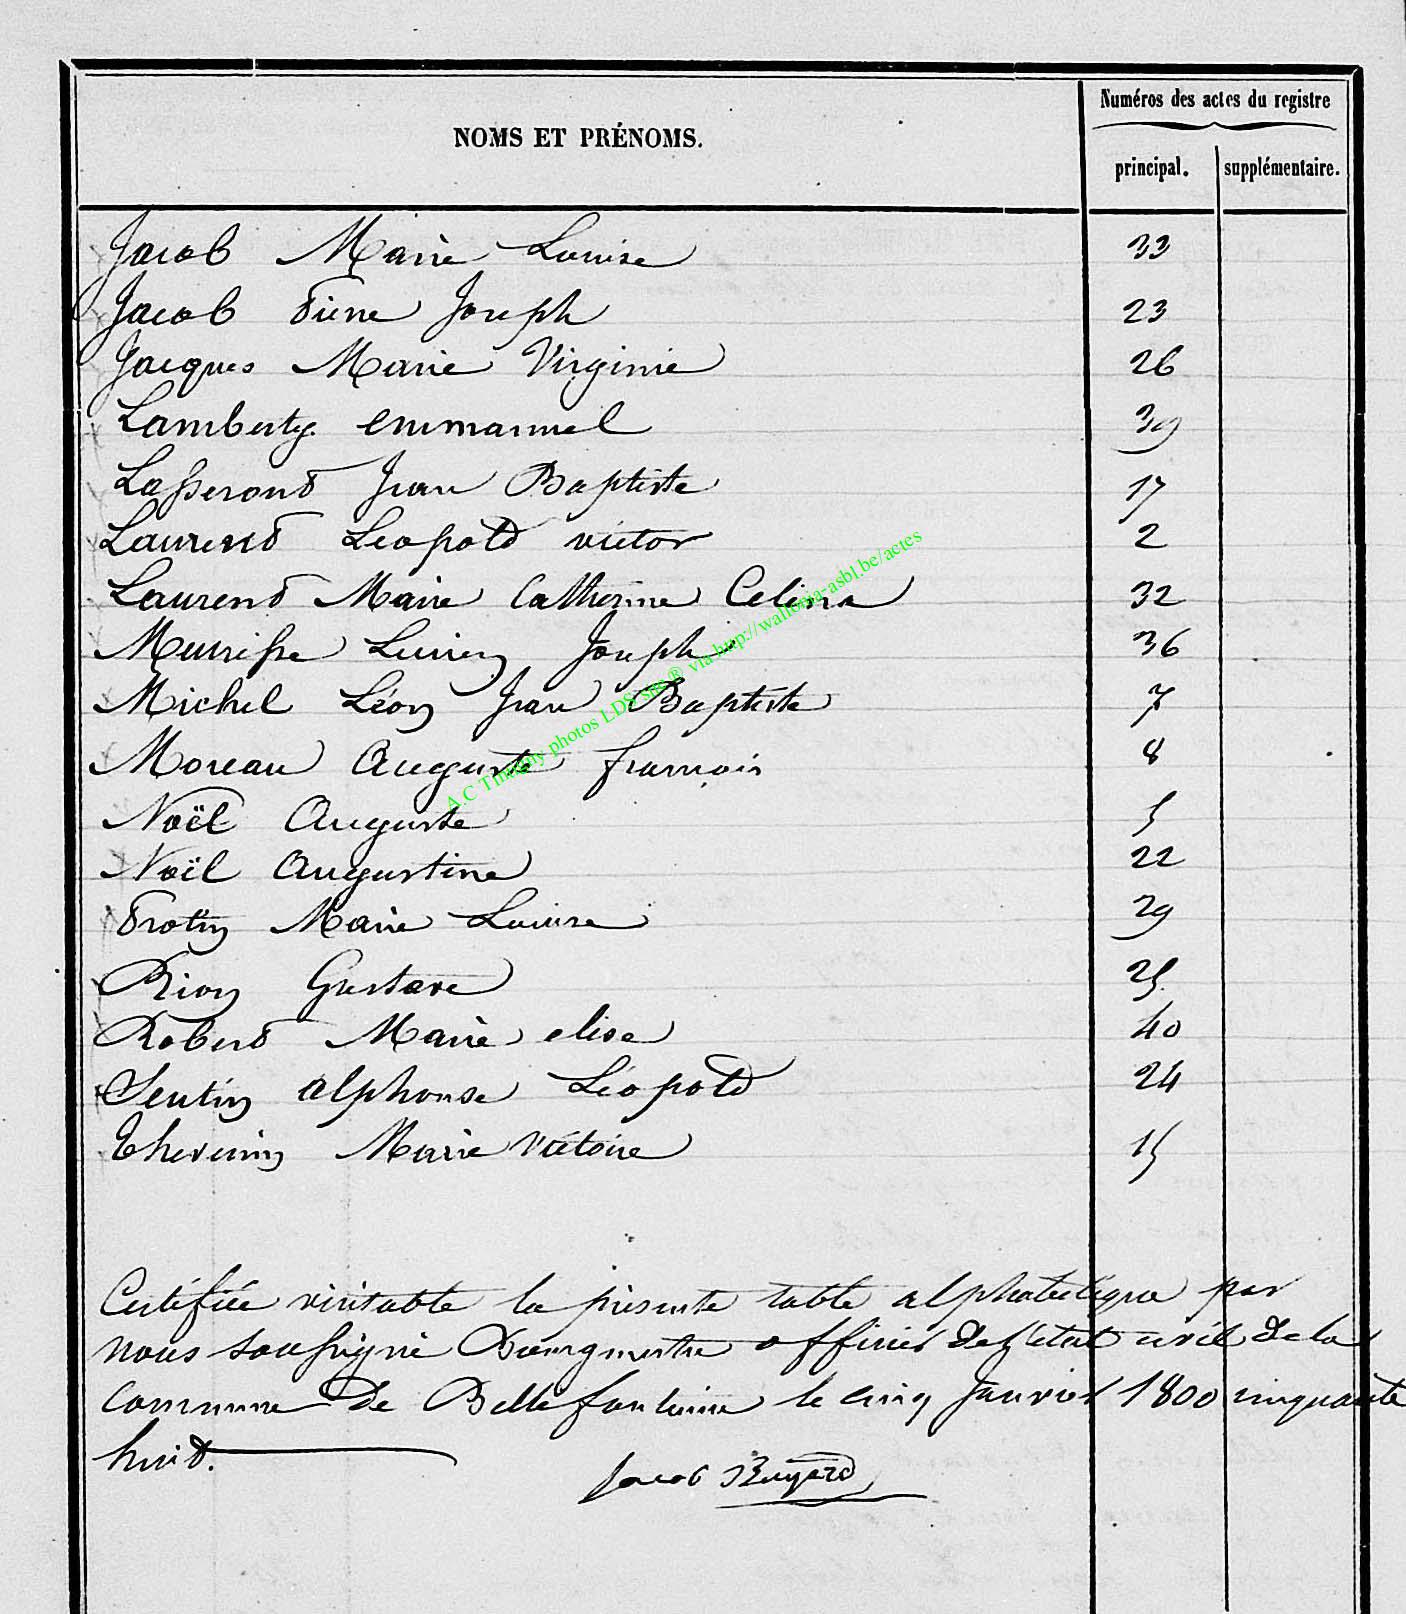 Numéros des actes du registre
NOMS ET PRÉNOMS.
principal. supplémentaire.
Jacob Marie Louise 33
Jacob Pierre Joseph 23
Jacques Marie Virginie 26
Lamberty emmanuel 39
Lasserond Jean Baptiste 17
Laurend Leopold victor 2
Laurend Marie Catherine Celina 32
Meurisse Lucien Joseph 36
Michel Léon Jean Baptiste 7
Moreau Auguste françois 8
Noël Auguste 5
Noël Augustine 22
Protin Marie Louise 29
Rion Gustave 25
Roberd Marie elise 40
Sentin alphonse Léopold 24
Thevenin Marie Victoire 15
A.C Tintigny photos LDS site ® via http://wallonia-asbl.be/actes
Certifiée véritable la présente table alphabetique par
nous soussigné Bourgmestre officier de l'état civil de la
commune de Bellefontaine le cinq Janvier 1800 cinquante
huit.
Jacob